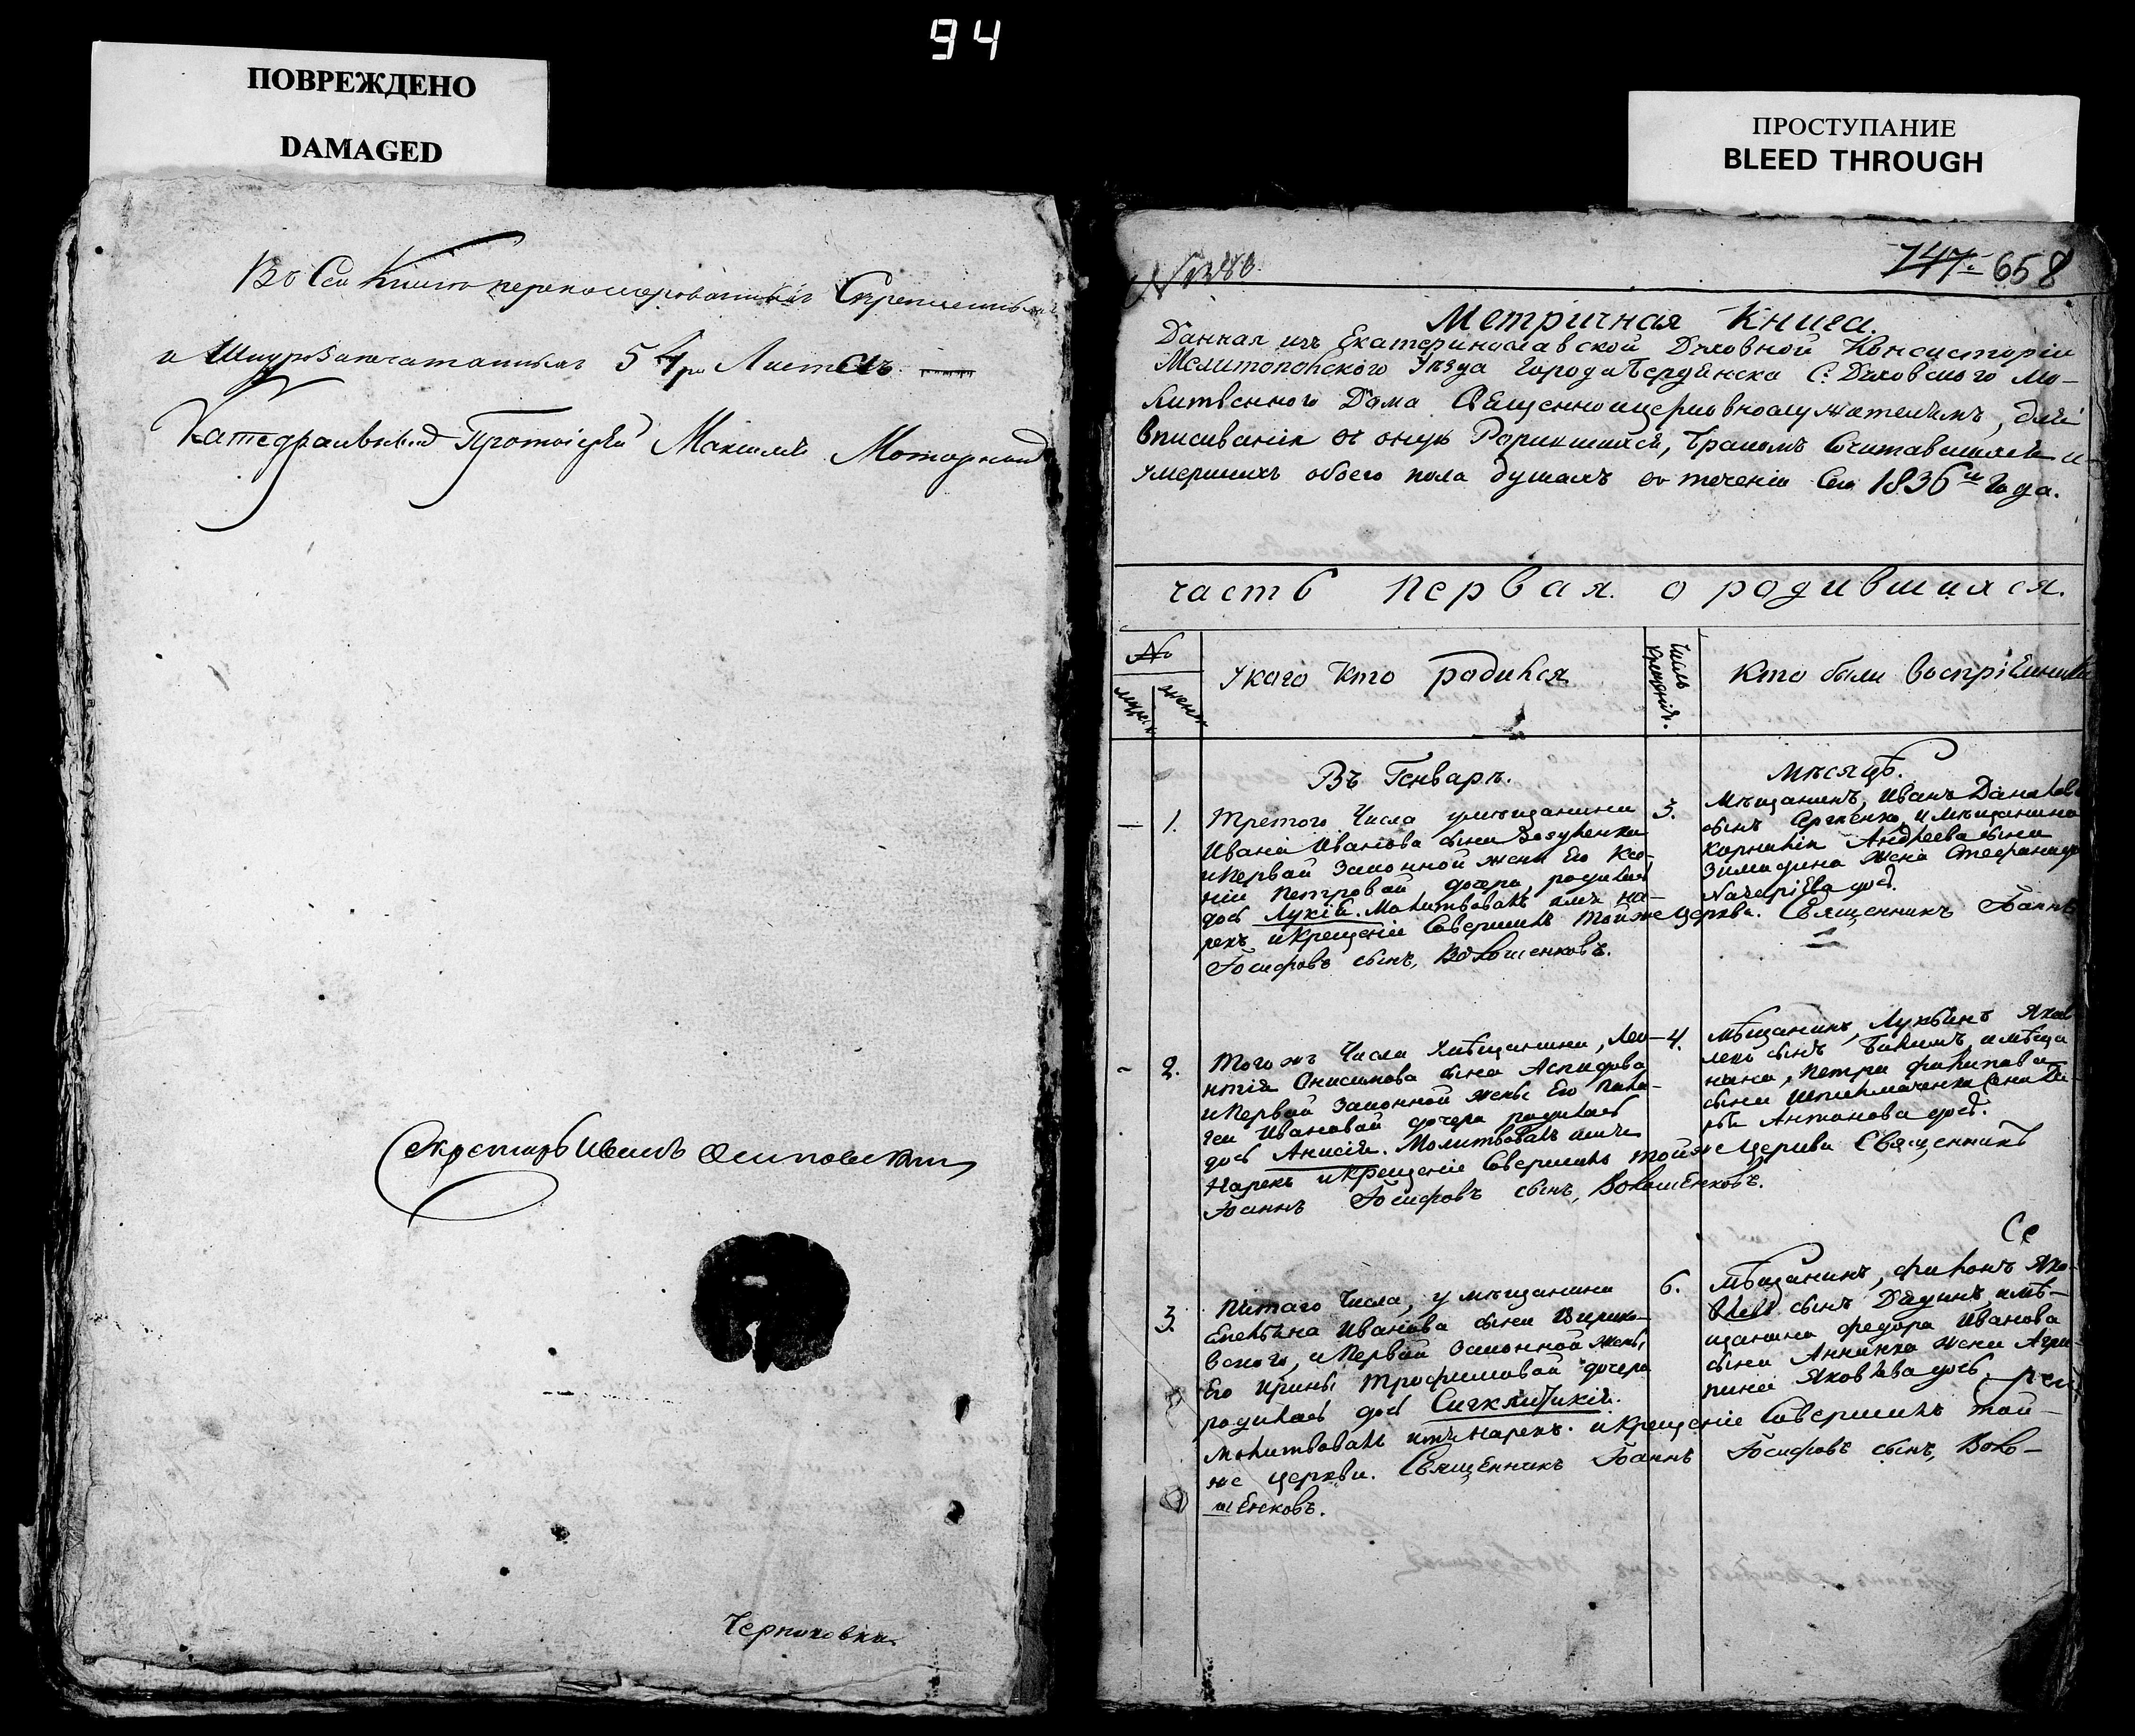 94
ПОВРЕЖДЕНО
DAMAGED
ПРОСТУПАНИЕ
BLEED THROUGH
Въ Сей Книге перенумерованныхъ Скрепленныхъ
и Шнурозапечатанныхъ 54ре Листа
Катедральный Протоіерей Максимъ
Секретарь Иванъ
747. 658
Метричная Книга.
Данная изъ Екатеринославской Духовной Консисторіи
Мелитопольского Уезда Города Бердянска С. Духовского Мо-
литвенного Дома Священноцерковнослужителямъ, для
вписыванія въ оную Родившихся, Бракомъ Сочитавшихся и
умершихъ обоего пола душахъ въ теченіи Сего 1836го Года.
часть первая. о родившихся.
№
У кого кто родился
Число крещенія.
Кто были воспріемники
мужск
женск
Въ Генваре.
Месяце.
1.
Третого Числа у мещанина
Ивана Иванова сына
и первой Законной жены Его Ксе-
ніи Петровой дочери родилась
дочь Лукія. Молитвовалъ имя на-
рекъ и крещеніе Совершилъ той же церкви. Священникъ Іоаннъ
Іосифовъ сынъ, Волошенковъ.
3.
Мещанинъ, Иванъ Данилов
сынъ Сергіенко и мещанина
Корнилія Андреева сына
жена Стефанида
дочь.
2.
Того жъ Числа у мещанина, Лео-
нтія Онисимова сына
и первой Законной жены Его Пела-
геи Ивановой дочери родилась
дочь Анисія. Молитвовалъ имя
Нарекъ и крещеніе Совершилъ той же Церкви Священникъ
Іоаннъ Іосифовъ сынъ, Волошенковъ.
4.
Мещанинъ, Лукьянъ Яков
левъ сынъ и меща
нина, Петра Филипова
сына
Антонова дочь.
Се
3.
Пятаго Числа, у мещанина
Емельяна Иванова сына
вского, и первой Законной жены
Его Ирины Трофимовой дочери
родилась дочь Сигклитикія.
Молитвовалъ имя нарекъ. и крещеніе Совершилъ той-
же церкви. Священникъ Іоаннъ Іосифовъ сынъ, Воло-
шенковъ.
6.
Мещанинъ, Филонъ Яко-
влевъ сынъ и ме-
щанина Федора Иванова
сына жена Агри-
пина Яковлева дочь